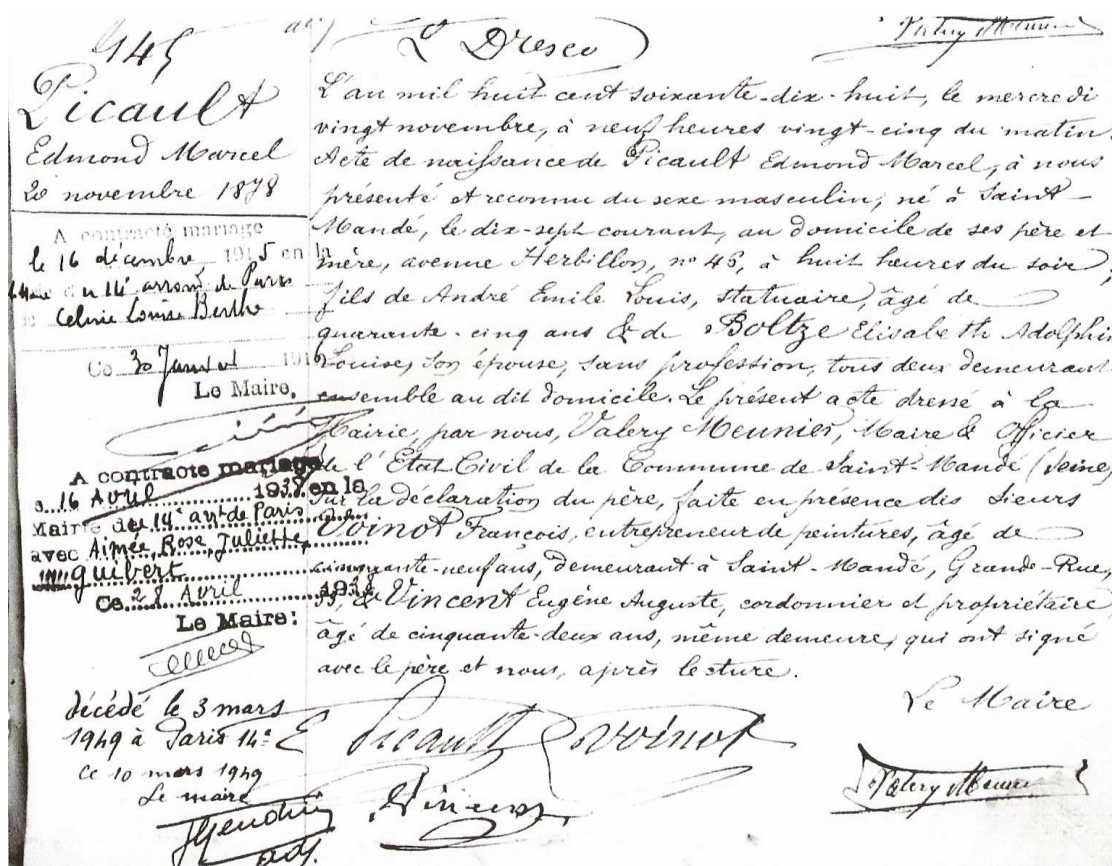 L Dresco
Valery Meunier
145
Picault
Edmond Marcel
20 novembre 1878
A contracté mariage
le 16 décembre 1915 en la
Mairie du 14e arrondt de Paris
Celinie Louise Berthe
Ce 30 Janvier 191
Le Maire,
A contracté mariage
16 Avril 1938 en la
Mairie du 14e arrt de Paris
avec Aimée, Rose, Juliette,
Guibert
Ce 28 Avril 1938
Le Maire:
décédé le 3 mars
1949 à Paris 14e
Ce 10 mars 1949
Le maire
adj.
L'an mil huit cent soixante-dix-huit, le mercredi
vingt novembre, à neuf heures vingt-cinq du matin.
Acte de naissance de Picault Edmond Marcel, à nous
présenté et reconnu du sexe masculin, né à Saint-
Mandé, le dix-sept courant, au domicile de ses père et
mère, avenue Herbillon, no 43, à huit heures du soir;
fils de André Emile Louis, statuaire, âgé de
quarante-cinq ans & de Boltze Elisabeth Adolphin
Louise, son épouse, sans profession, tous deux demeurant
ensemble au dit domicile. Le présent acte dressé à la
Mairie, par nous, Valery Meunier, Maire & Officier
de l'Etat Civil de la Commune de Saint-Mandé (Seine)
sur la déclaration du père, faite en présence des Sieurs
Voinot François, entrepreneur de peintures, âgé de
cinquante-neuf ans, demeurant à Saint-Mandé, Grande-Rue,
& Vincent Eugène Auguste, cordonnier et propriétaire
âgé de cinquante-deux ans, même demeure, qui ont signé
avec le père et nous, après lecture.
Le Maire
E Picault Voinot
Vincent
Valery Meunier